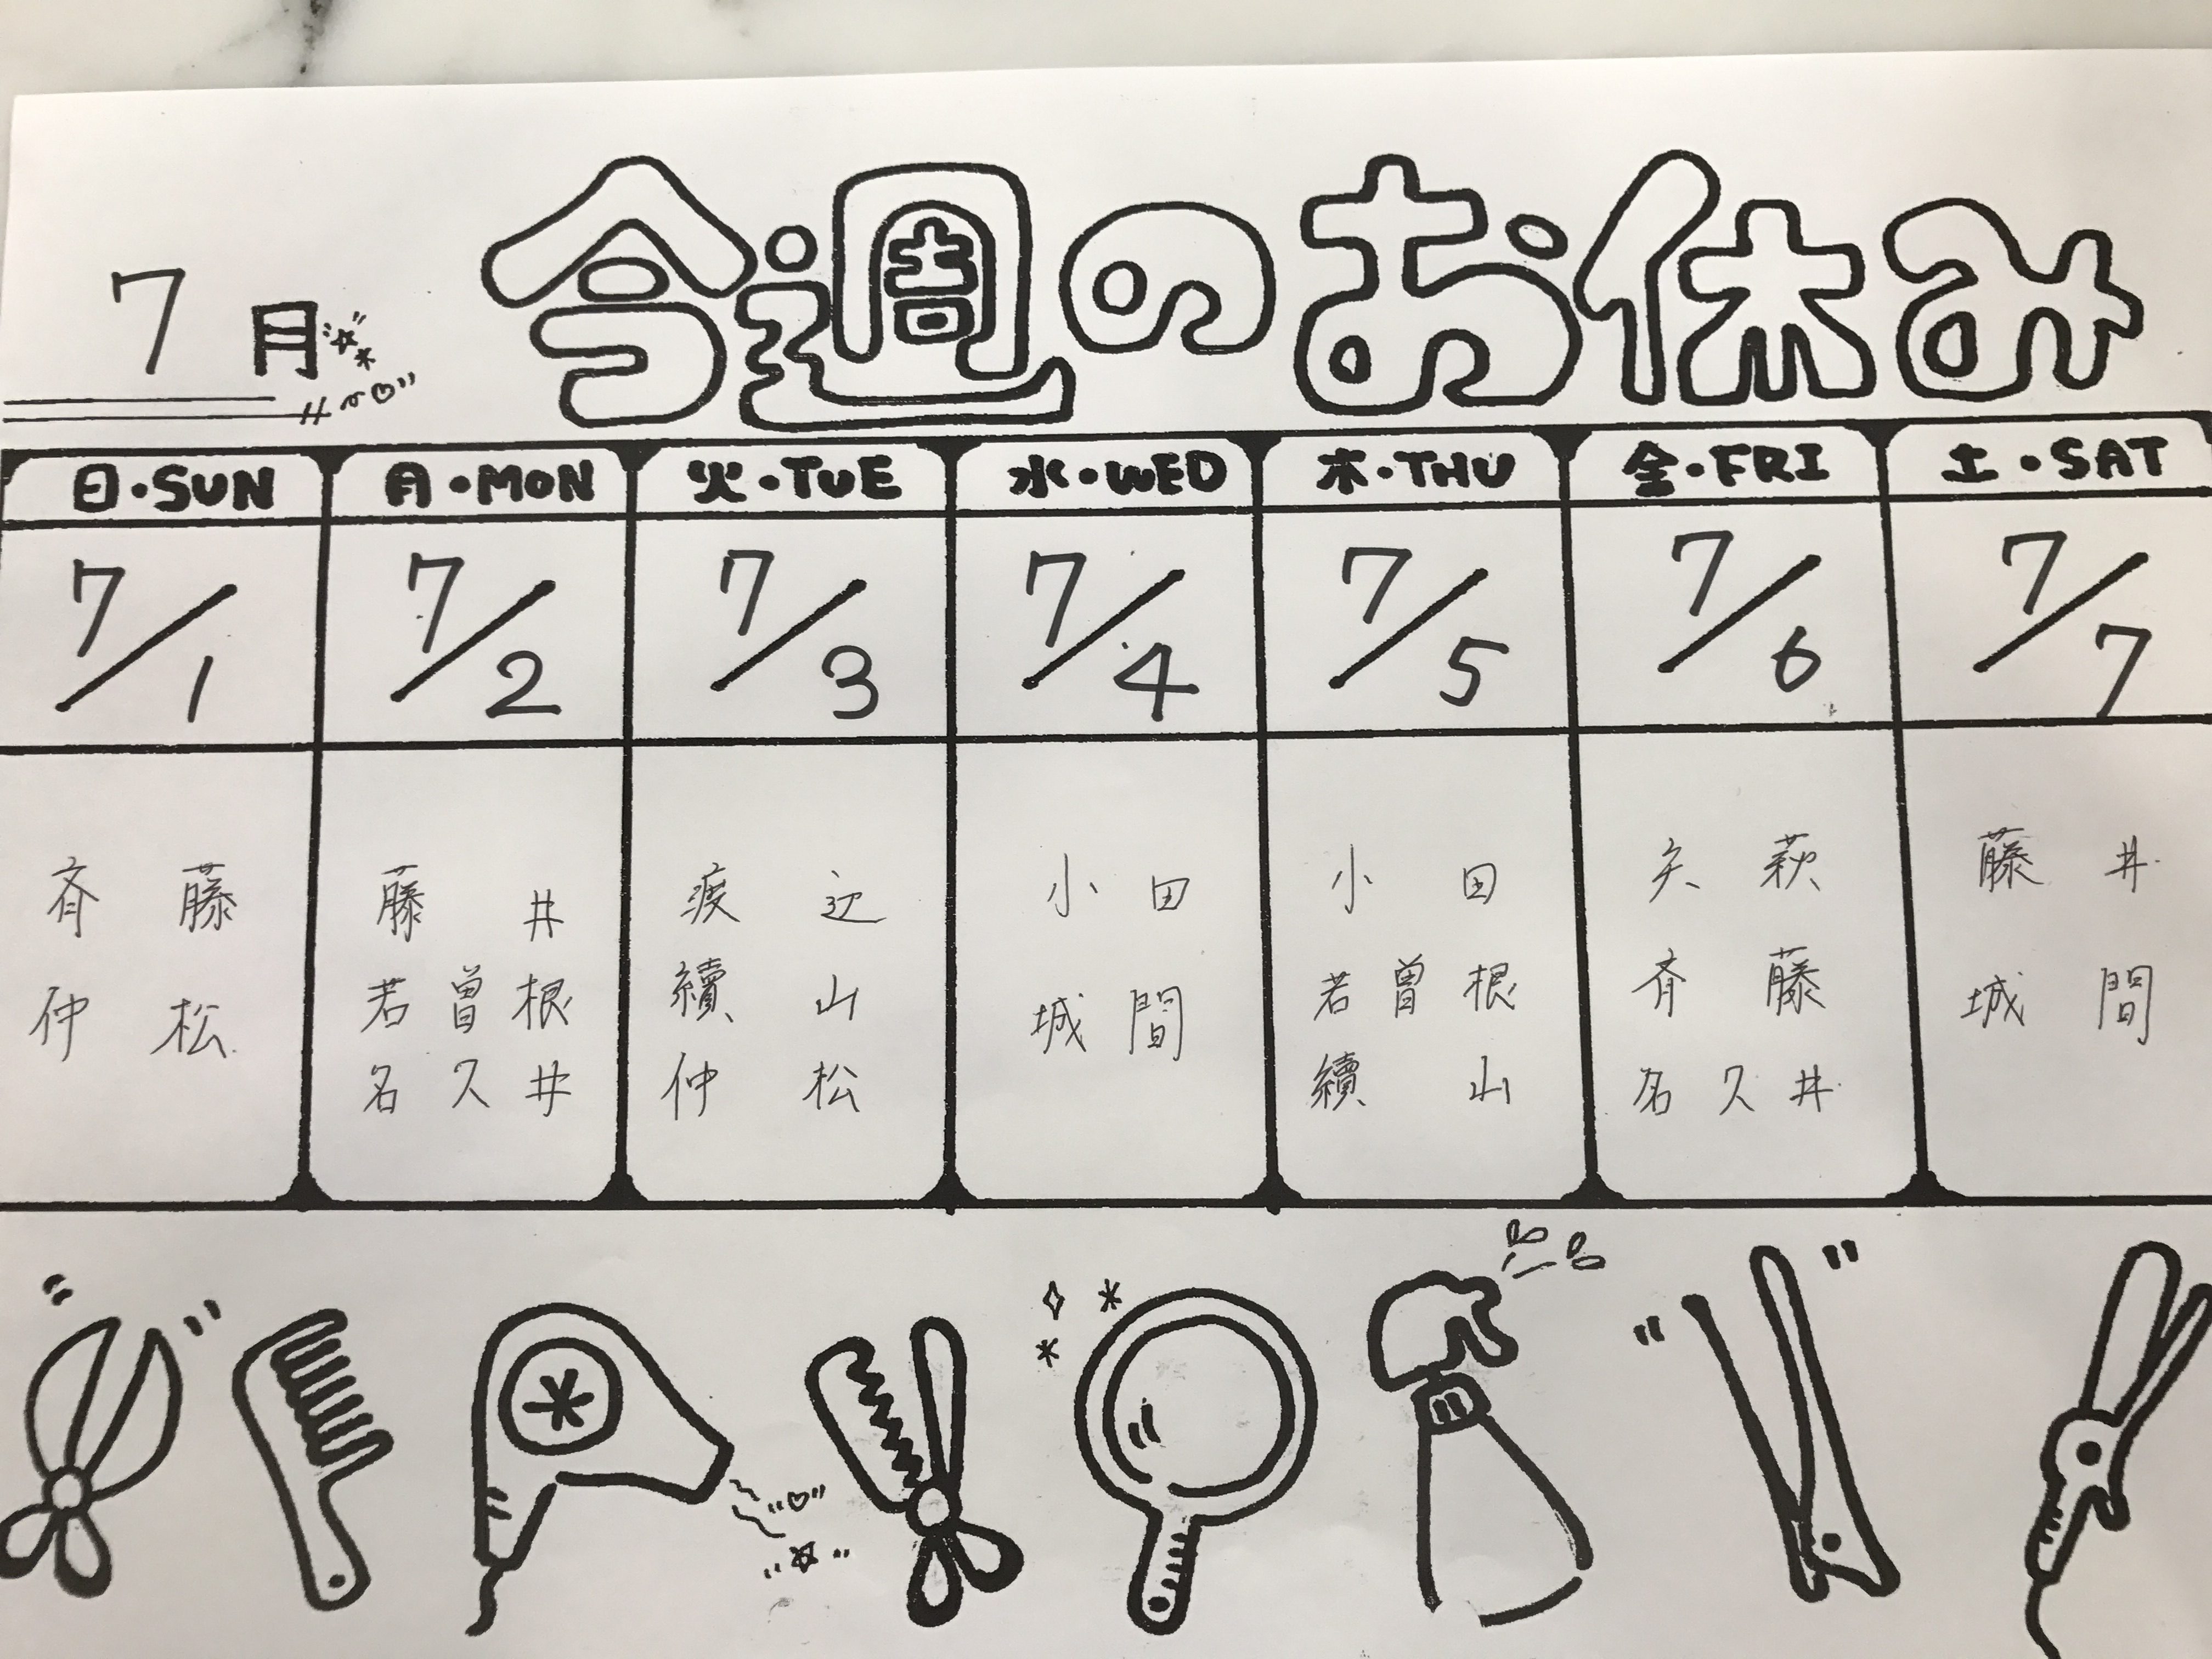 7月
今週のお休み
日・SUN
7/1
斉藤
仲松
月・MON
7/2
藤井
若曽根
名久井
火・TUE
7/3
渡辺
續山
仲松
水・WED
7/4
小田
城間
木・THU
7/5
小田
若曽根
續山
金・FRI
7/6
矢萩
斉藤
名久井
土・SAT
7/7
藤井
城間